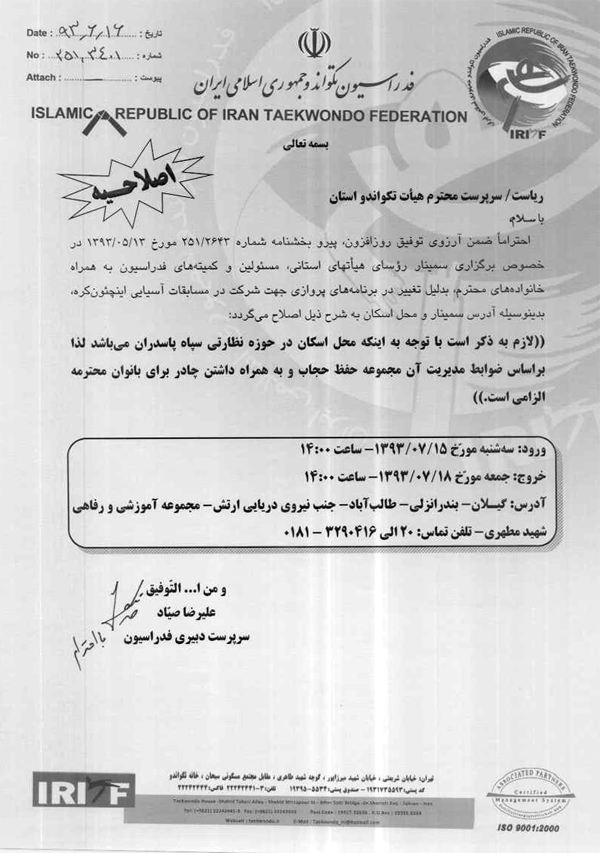 Date : ۹۳,۶,۱۶ تاریخ :
No : ۲۵۱,۳۴۰۱ شماره :
Attach : پیوست :
فدراسیون تکواندو جمهوری اسلامی ایران
ISLAMIC REPUBLIC OF IRAN TAEKWONDO FEDERATION
ISLAMIC REPUBLIC OF IRAN TAEKWONDO FEDERATION
IRITF
بسمه تعالی
اصلاحیه
ریاست/ سرپرست محترم هیأت تکواندو استان
با سلام،
احتراماً ضمن آرزوی توفیق روزافزون، پیرو بخشنامه شماره ۲۵۱/۲۶۴۳ مورخ ۱۳۹۳/۰۵/۱۳ در
خصوص برگزاری سمینار رؤسای هیأتهای استانی، مسئولین و کمیته‌های فدراسیون به همراه
خانواده‌های محترم، بدلیل تغییر در برنامه‌های پروازی جهت شرکت در مسابقات آسیایی اینچئون‌کره،
بدینوسیله آدرس سمینار و محل اسکان به شرح ذیل اصلاح می‌گردد:
((لازم به ذکر است با توجه به اینکه محل اسکان در حوزه نظارتی سپاه پاسدران می‌باشد لذا
براساس ضوابط مدیریت آن مجموعه حفظ حجاب و به همراه داشتن چادر برای بانوان محترمه
الزامی است.))
ورود: سه‌شنبه مورّخ ۱۳۹۳/۰۷/۱۵- ساعت ۱۴:۰۰
خروج: جمعه مورّخ ۱۳۹۳/۰۷/۱۸- ساعت ۱۴:۰۰
آدرس: گیلان- بندرانزلی- طالب‌آباد- جنب نیروی دریایی ارتش- مجموعه آموزشی و رفاهی
شهید مطهری- تلفن تماس: ۲۰ الی ۳۲۹۰۴۱۶ - ۰۱۸۱
و من ا... التّوفیق
علیرضا صیّاد
سرپرست دبیری فدراسیون
با احترام
IRITF
تهران: خیابان شریعتی ، خیابان شهید میرزاپور ، کوچه شهید طاهری ، مقابل مجتمع مسکونی سبحان ، خانه تکواندو
کد پستی: ۱۹۳۱۷۳۵۵۹۳ - صندوق پستی: ۵۵۳۴-۱۹۳۹۵ تلفن: ۳-۲۲۲۴۲۴۴۱ فاکس: ۲۲۲۴۲۴۴۴
ASSOCIATED PARTNERS
Certified
Management System
ISO 9001:2000